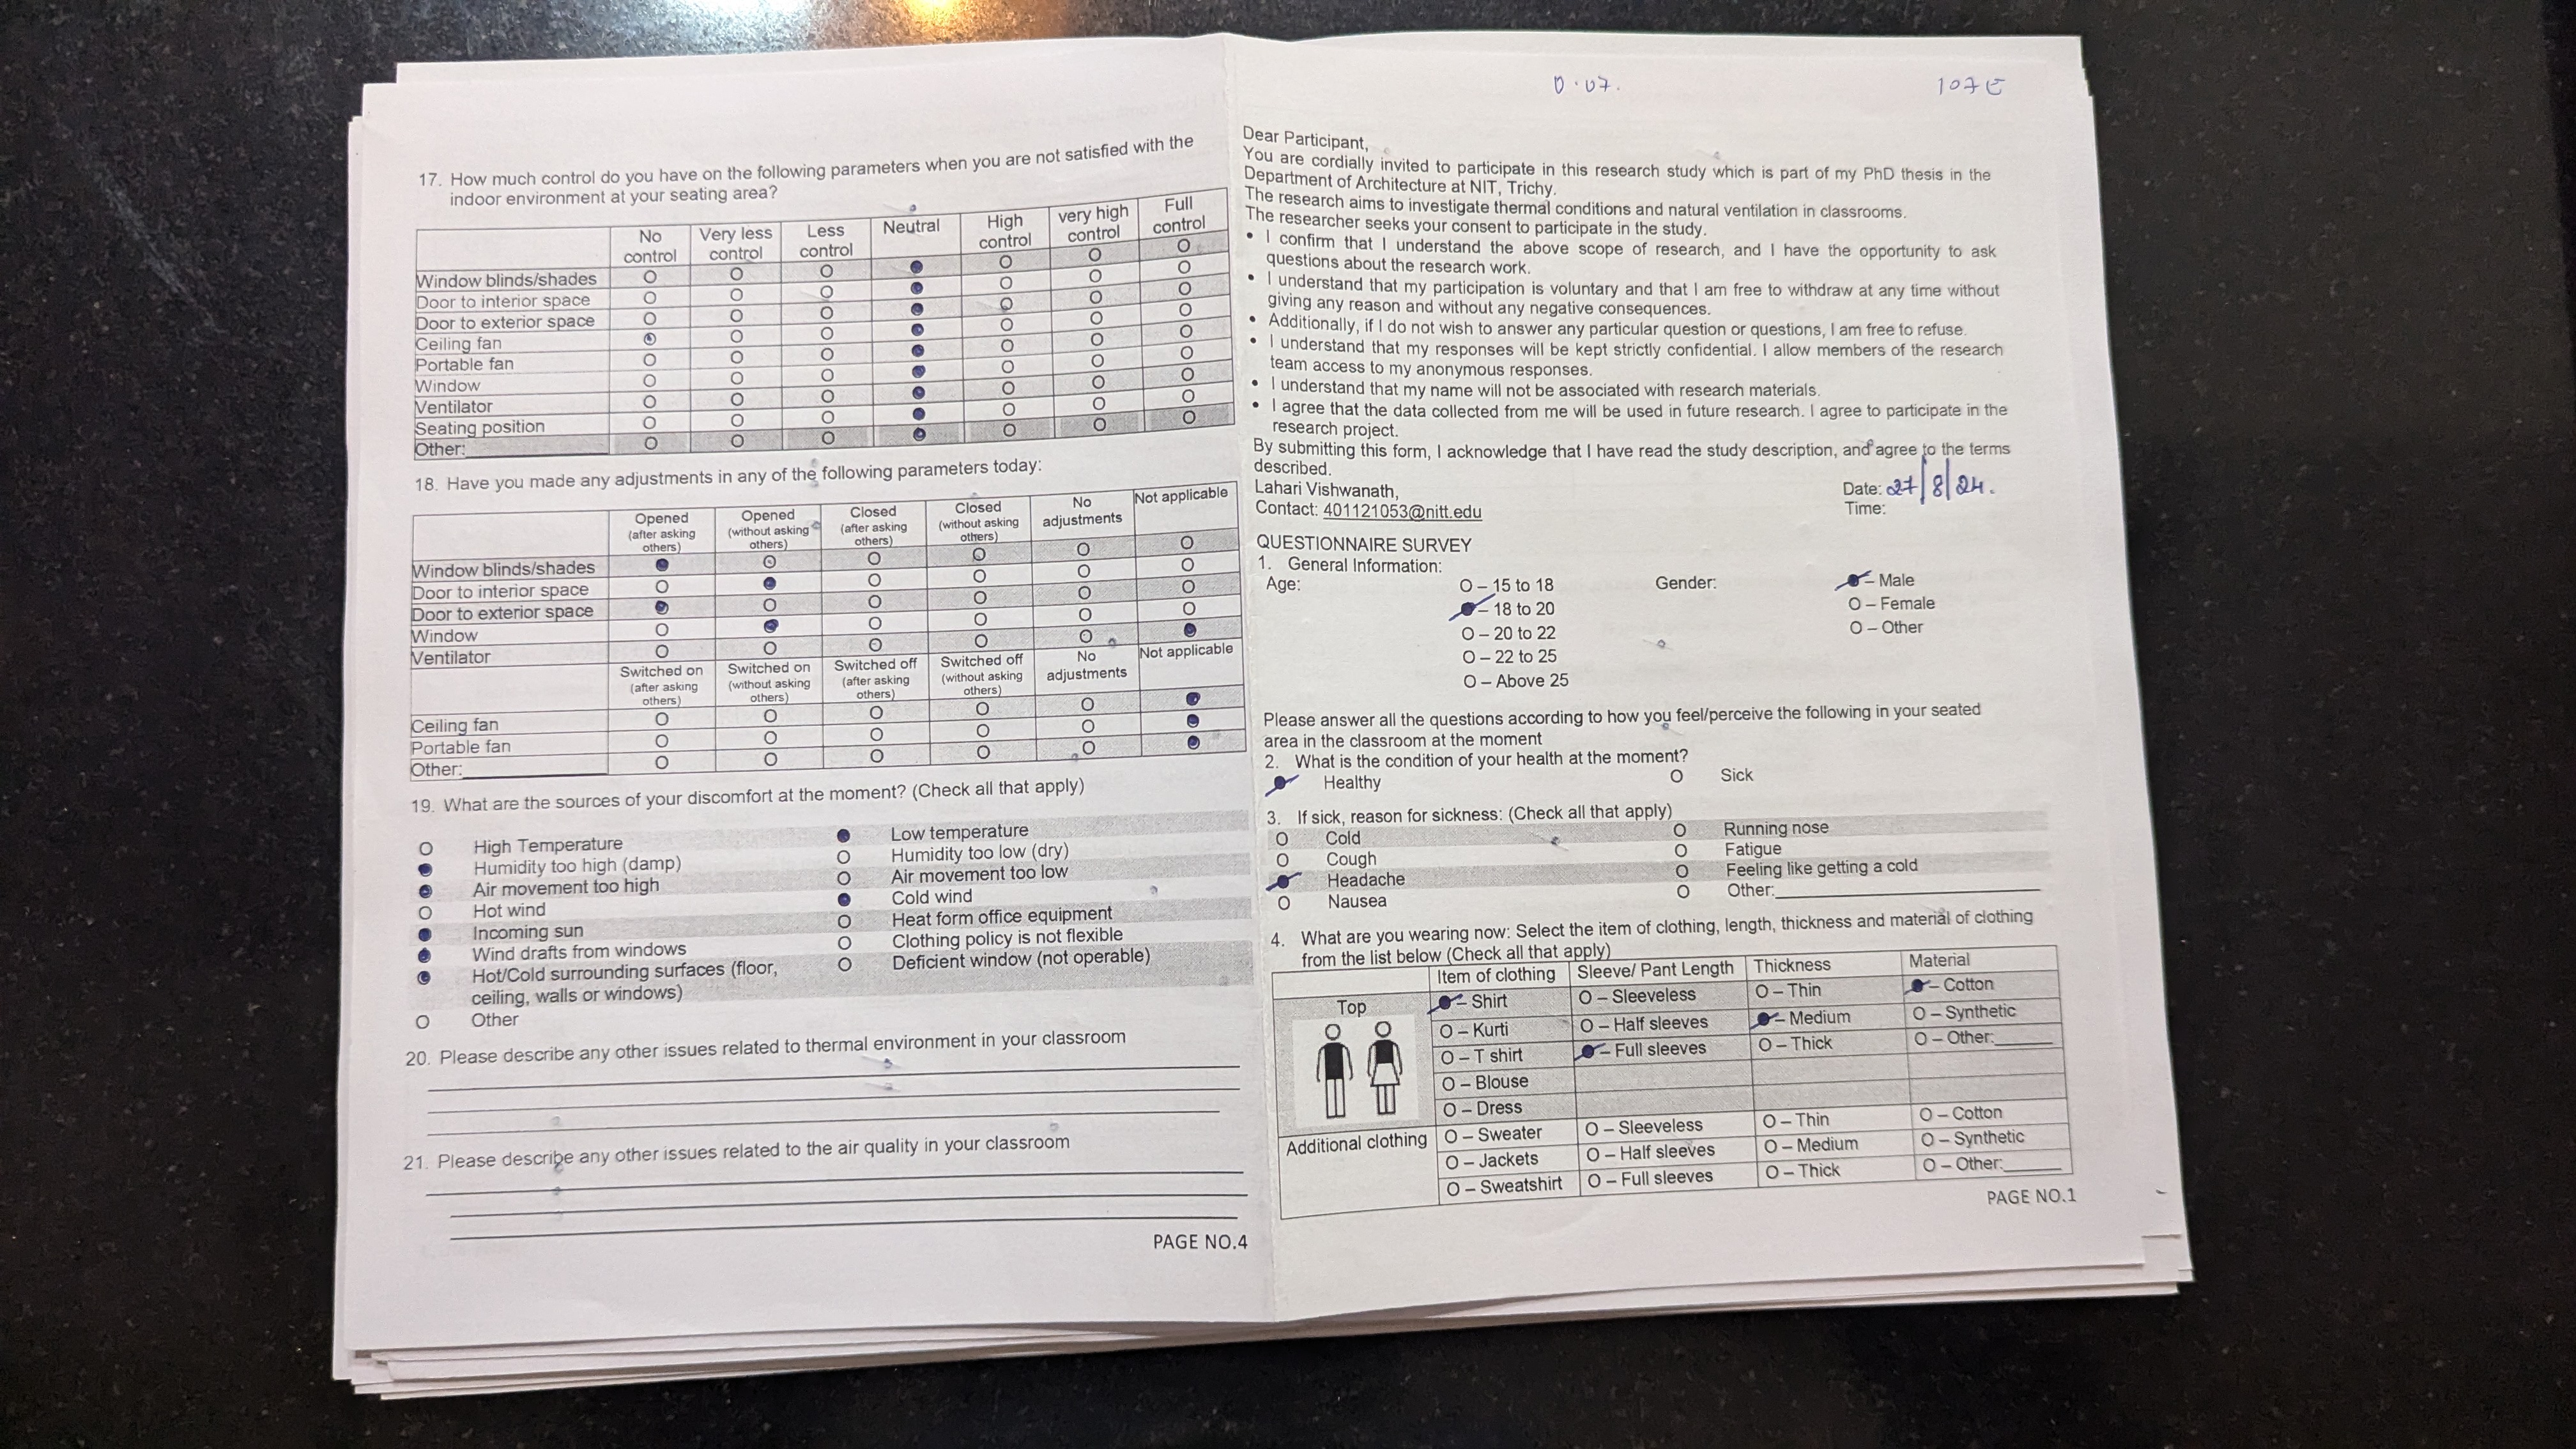 17. How much control do you have on the following parameters when you are not satisfied with the
indoor environment at your seating area?
No control Very less control Less control Neutral High control very high control Full control
Window blinds/shades O O O ● O O O
Door to interior space O O O ● O O O
Door to exterior space O O O ● O O O
Ceiling fan O O O ● O O O
Portable fan O O O ● O O O
Window O O O ● O O O
Ventilator O O O ● O O O
Seating position O O O ● O O O
Other: O O O ● O O O
18. Have you made any adjustments in any of the following parameters today:
Opened (after asking others) Opened (without asking others) Closed (after asking others) Closed (without asking others) No adjustments Not applicable
Window blinds/shades ● O O O O O
Door to interior space O ● O O O O
Door to exterior space ● O O O O O
Window O ● O O O O
Ventilator O O O O O ●
Switched on (after asking others) Switched on (without asking others) Switched off (after asking others) Switched off (without asking others) No adjustments Not applicable
Ceiling fan O O O O O ●
Portable fan O O O O O ●
Other: O O O O O ●
19. What are the sources of your discomfort at the moment? (Check all that apply)
O High Temperature ● Low temperature
● Humidity too high (damp) O Humidity too low (dry)
● Air movement too high O Air movement too low
O Hot wind ● Cold wind
● Incoming sun O Heat form office equipment
● Wind drafts from windows O Clothing policy is not flexible
● Hot/Cold surrounding surfaces (floor, O Deficient window (not operable)
ceiling, walls or windows)
O Other
20. Please describe any other issues related to thermal environment in your classroom
21. Please describe any other issues related to the air quality in your classroom
PAGE NO.4
0.07. 107E
Dear Participant,
You are cordially invited to participate in this research study which is part of my PhD thesis in the
Department of Architecture at NIT, Trichy.
The research aims to investigate thermal conditions and natural ventilation in classrooms.
The researcher seeks your consent to participate in the study.
• I confirm that I understand the above scope of research, and I have the opportunity to ask
questions about the research work.
• I understand that my participation is voluntary and that I am free to withdraw at any time without
giving any reason and without any negative consequences.
• Additionally, if I do not wish to answer any particular question or questions, I am free to refuse.
• I understand that my responses will be kept strictly confidential. I allow members of the research
team access to my anonymous responses.
• I understand that my name will not be associated with research materials.
• I agree that the data collected from me will be used in future research. I agree to participate in the
research project.
By submitting this form, I acknowledge that I have read the study description, and agree to the terms
described.
Lahari Vishwanath, Date: 27/8/24.
Contact: 401121053@nitt.edu Time:
QUESTIONNAIRE SURVEY
1. General Information:
Age: O – 15 to 18 Gender: ● – Male
● – 18 to 20 O – Female
O – 20 to 22 O – Other
O – 22 to 25
O – Above 25
Please answer all the questions according to how you feel/perceive the following in your seated
area in the classroom at the moment
2. What is the condition of your health at the moment?
● Healthy O Sick
3. If sick, reason for sickness: (Check all that apply)
O Cold O Running nose
O Cough O Fatigue
● Headache O Feeling like getting a cold
O Nausea O Other:
4. What are you wearing now: Select the item of clothing, length, thickness and material of clothing
from the list below (Check all that apply)
Item of clothing Sleeve/ Pant Length Thickness Material
Top ● – Shirt O – Sleeveless O – Thin ● – Cotton
O – Kurti O – Half sleeves ● – Medium O – Synthetic
O – T shirt ● – Full sleeves O – Thick O – Other:
O – Blouse
O – Dress
Additional clothing O – Sweater O – Sleeveless O – Thin O – Cotton
O – Jackets O – Half sleeves O – Medium O – Synthetic
O – Sweatshirt O – Full sleeves O – Thick O – Other:
PAGE NO.1